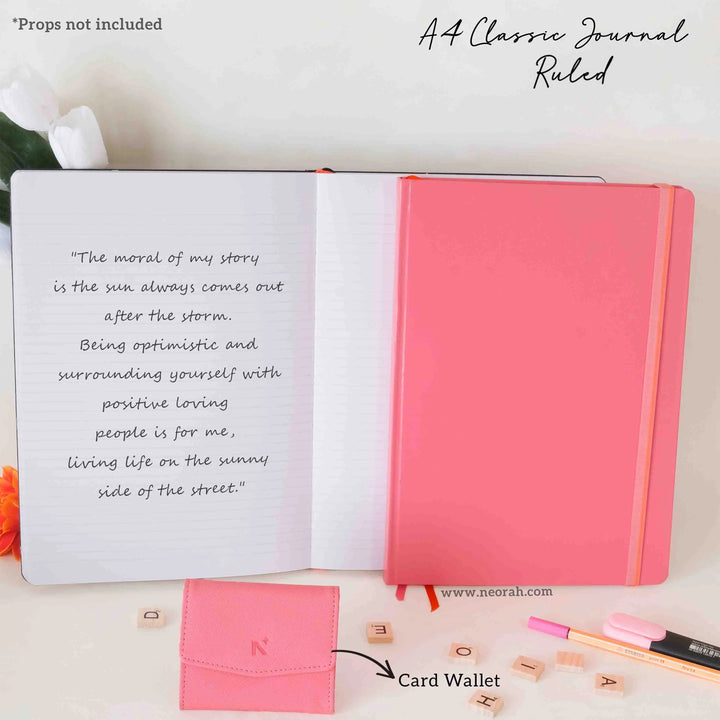 *Props not included
A4 Classic Journal
Ruled
"The moral of my story
is the sun always comes out
after the storm.
Being optimistic and
surrounding yourself with
positive loving
people is for me,
living life on the sunny
side of the street."
www.neorah.com
N
D
E
O
I
A
H
Card Wallet